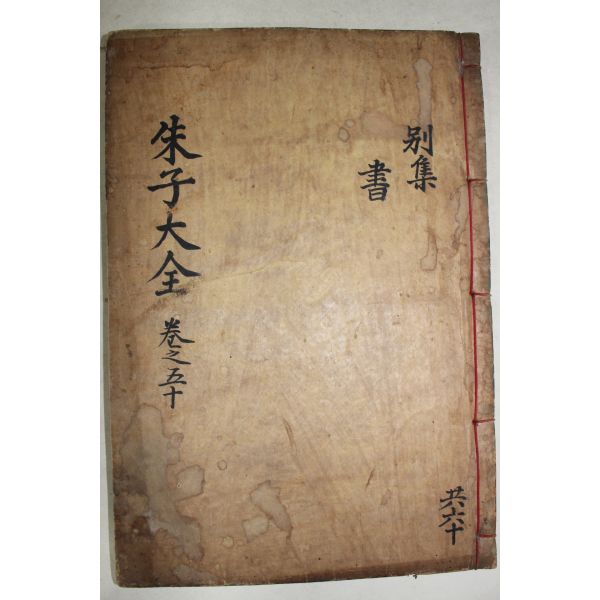 別集
書
朱子大全 卷之五十
共六十